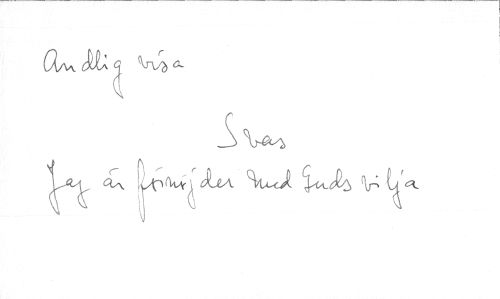 Andlig visa
Svar
Jag är förnöjder med Guds vilja